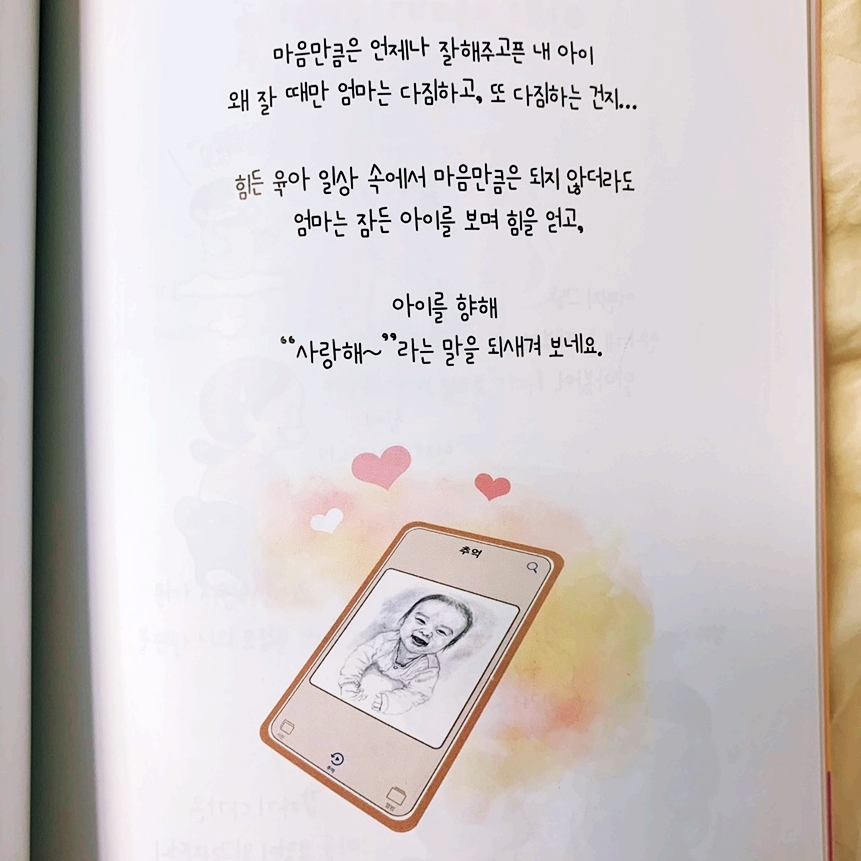 마음만큼은 언제나 잘해주고픈 내 아이
왜 잘 때만 엄마는 다짐하고, 또 다짐하는 건지...
힘든 육아 일상 속에서 마음만큼은 되지 않더라도
엄마는 잠든 아이를 보며 힘을 얻고,
아이를 향해
“사랑해~”라는 말을 되새겨 보네요.
추억
추억
앨범